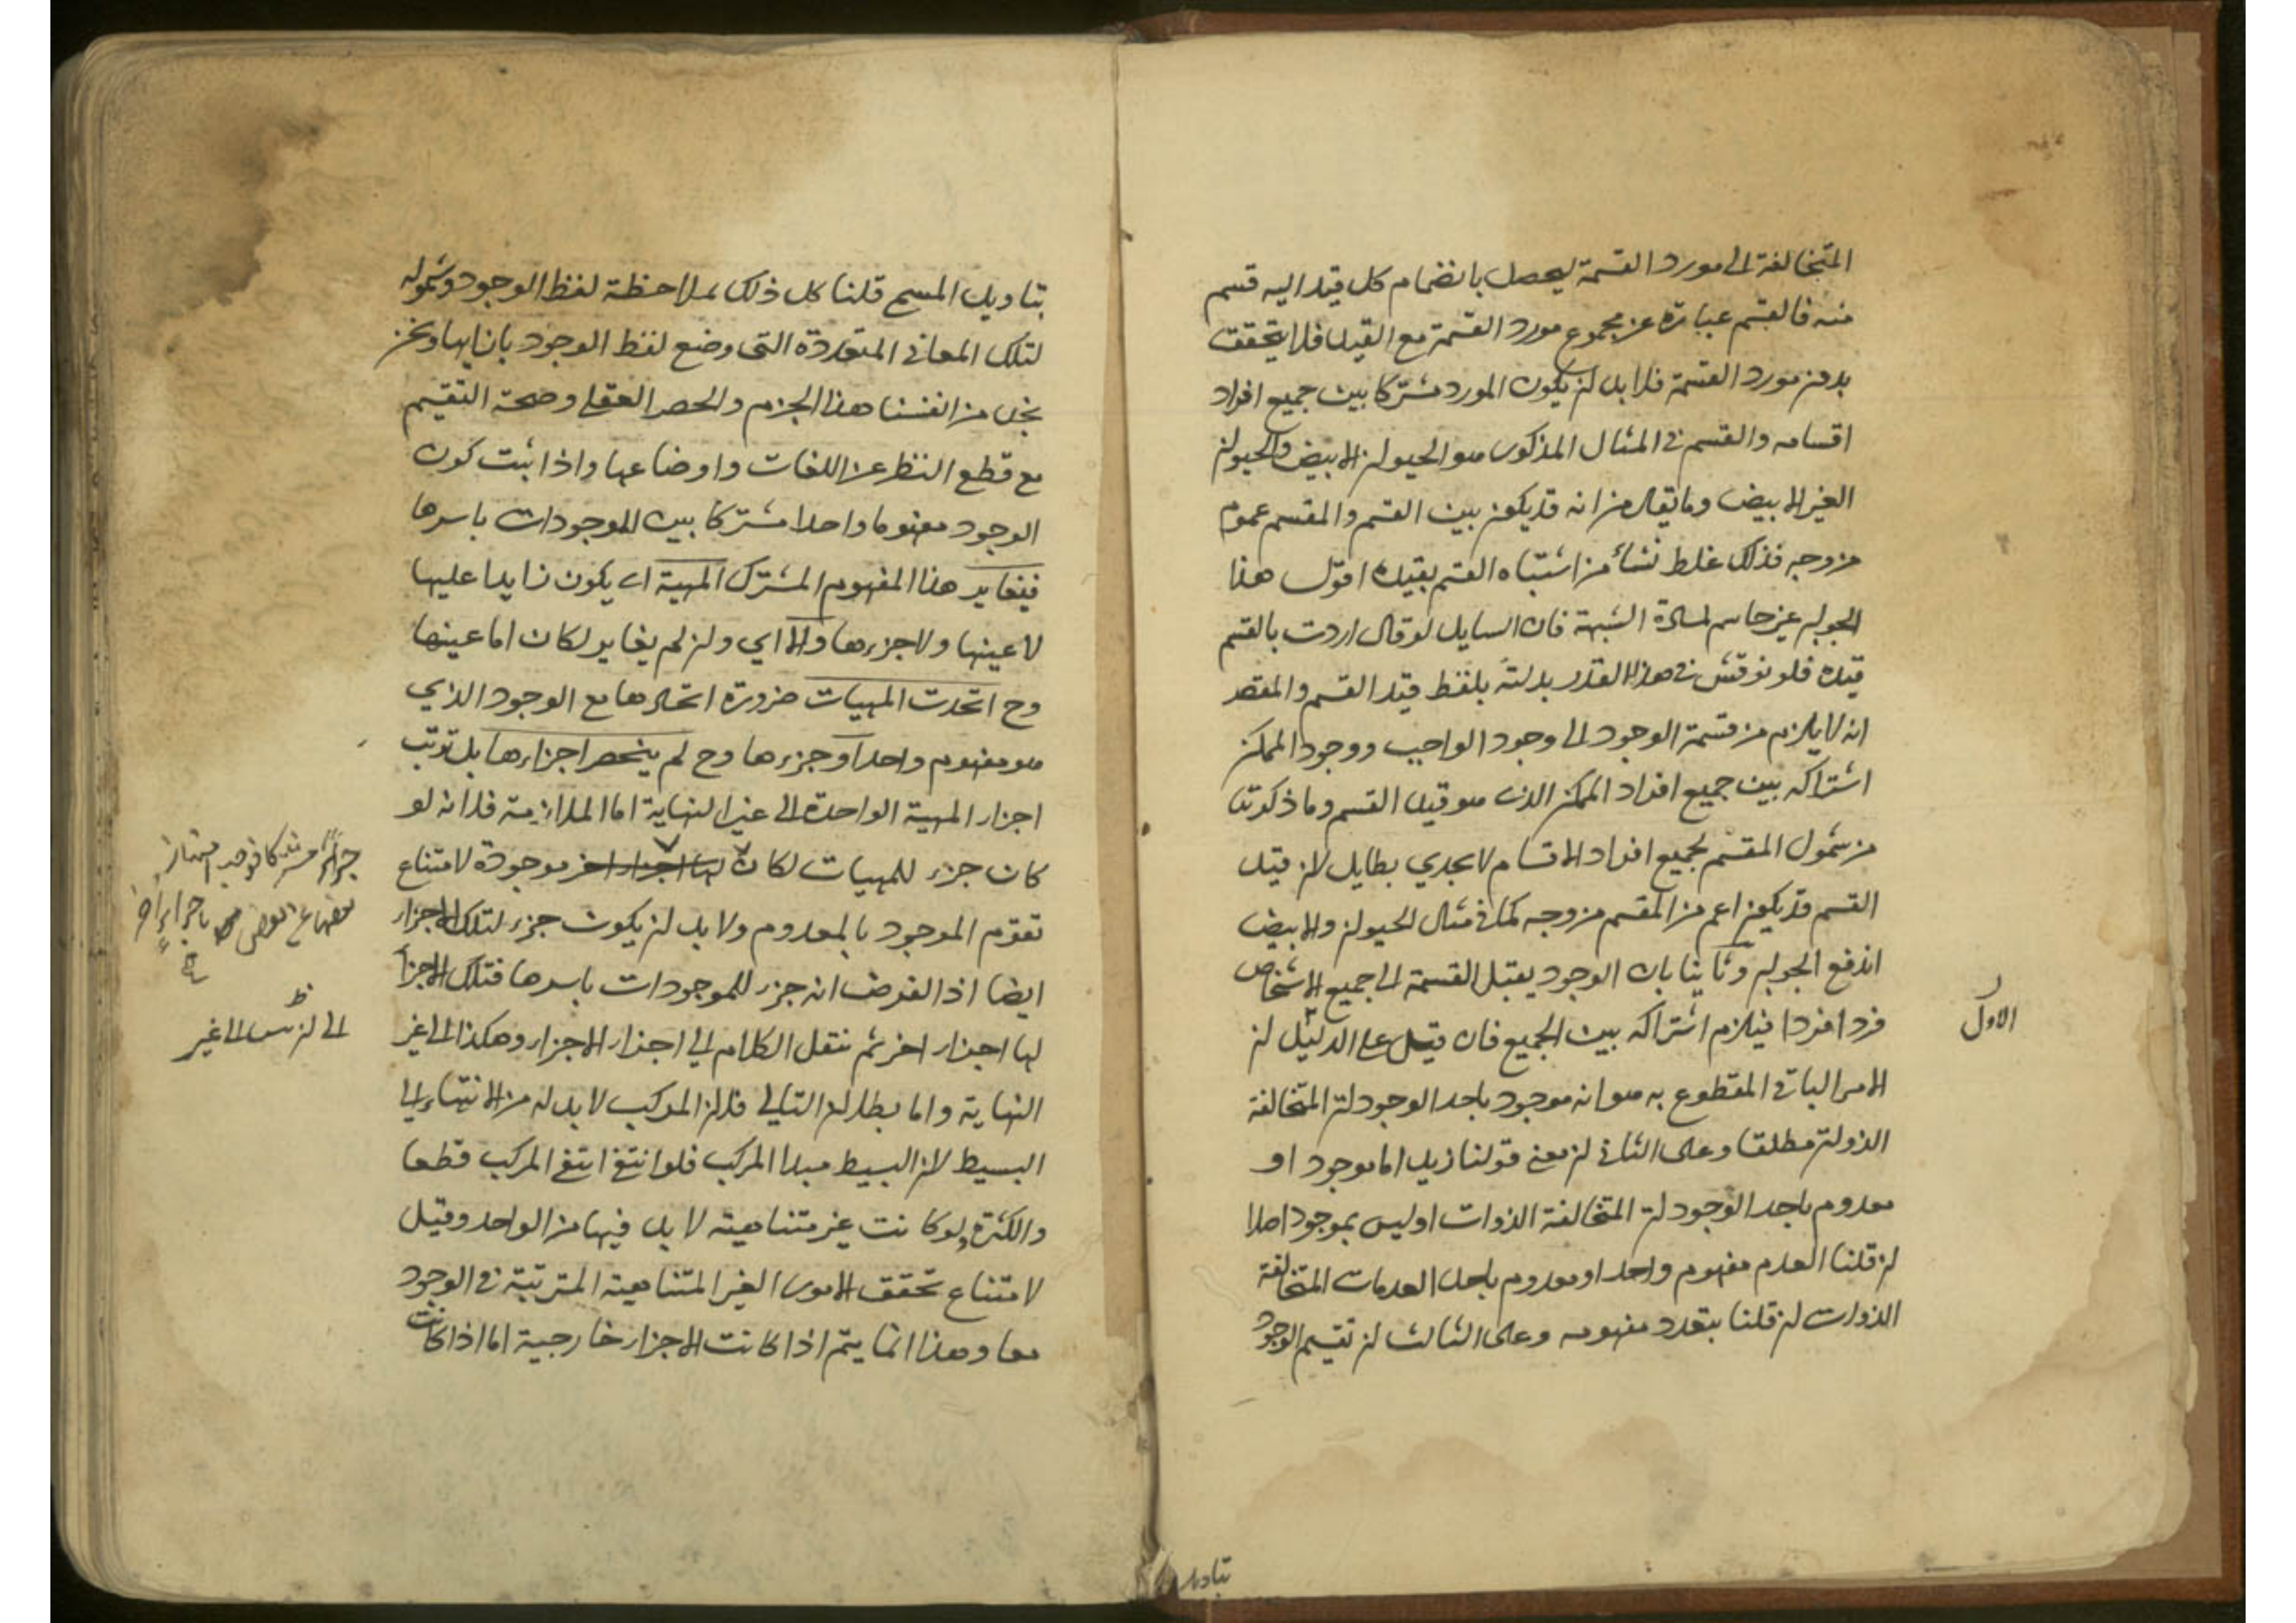 المتخالفة الى مورد القسمة ليحصل بانضمام كل قيد اليه قسم
منه فالقسم عبارة عن مجموع مورد القسمة مع القيد فلا يتحقق
بدون مورد القسمة فلا بد ان يكون المورد مشتركا بين جميع افراد
اقسامه والقسم في المثال المذكور هو الحيوان الابيض والحيوان
الغير الابيض وما يقال من انه قد يكون بين القسم والمقسم عموم
من وجه فذلك غلط نشأ من اشتباه القسم بقيده اقول هذا
الجواب غير حاسم لمادة الشبهة فان السايل لو قال اردت بالقسم
قيده فلو نوقش في هذا القدر بدلته بلفظ قيد القسم والمقصد
انه لا يلزم من قسمة الوجود الى وجود الواجب ووجود الممكن
اشتراكه بين جميع افراد الممكن الذي هو قيد القسم وما ذكرته
من شمول المقسم لجميع افراد الاقسام لا يجدي بطايل لان قيد
القسم قد يكون اعم من المقسم من وجه كما في مثال الحيوان والابيض
اندفع الجواب وثانيا بان الوجود يقبل القسمة الى جميع الاشخاص
فردا فردا فيلزم اشتراكه بين الجميع فان قيل على الدليل ان
الاول
الامر الباقي المقطوع به هو انه موجود باحد الوجودات المتخالفة
الذوات مطلقا وعلى الثاني ان معنى قولنا زيد اما موجود او
معدوم باحد الوجودات المتخالفة الذوات او ليس بموجود اصلا
ان قلنا العدم مفهوم واحد او معدوم باحد العدمات المتخالفة
الذوات ان قلنا بتعدد مفهومه وعلى الثالث ان تقسيم الوجود
بتاويل المسمى قلنا كل ذلك بملاحظة لفظ الوجود وشموله
لتلك المعاني المتعددة التي وضع لفظ الوجود بازايها ونحن
نجد من انفسنا هذا الجزم والحصر العقلي وصحة التقسيم
مع قطع النظر عن اللغات واوضاعها واذا ثبت كون
الوجود مفهوما واحدا مشتركا بين الموجودات باسرها
فيغاير هذا المفهوم المشترك المهية اي يكون زايدا عليها
لا عينها ولا جزءها والا اي وان لم يغاير لكان اما عينها
وح اتحدت المهيات ضرورة اتحادها مع الوجود الذي
هو مفهوم واحد او جزءها وح لم ينحصر اجزاءها بل ترتب
اجزاء المهية الواحدة الى غير النهاية اما الملازمة فلانه لو
كان جزء للمهيات لكان لها اجزاء اخر موجودة لامتناع
تقوم الموجود بالمعدوم ولا بد ان يكون جزء لتلك الاجزاء
ايضا اذ الفرض انه جزء للموجودات باسرها فتلك الاجزاء
لها اجزاء اخر ثم ننقل الكلام الى اجزاء الاجزاء وهكذا الى غير
النهاية واما بطلان التالي فلان المركب لا بد له من الانتهاء الى
البسيط لان البسيط مبدا المركب فلو انتفى انتفى المركب قطعا
والكثرة ولو كانت غير متناهية لا بد فيها من الواحد وقيل
لامتناع تحقق الامور الغير المتناهية المترتبة في الوجود
معا وهذا انما يتم اذا كانت الاجزاء خارجية اما اذا كانت
جزأ مشتركا
بعضها عن البعض باجزاء اخر
الى غير
بتاويل